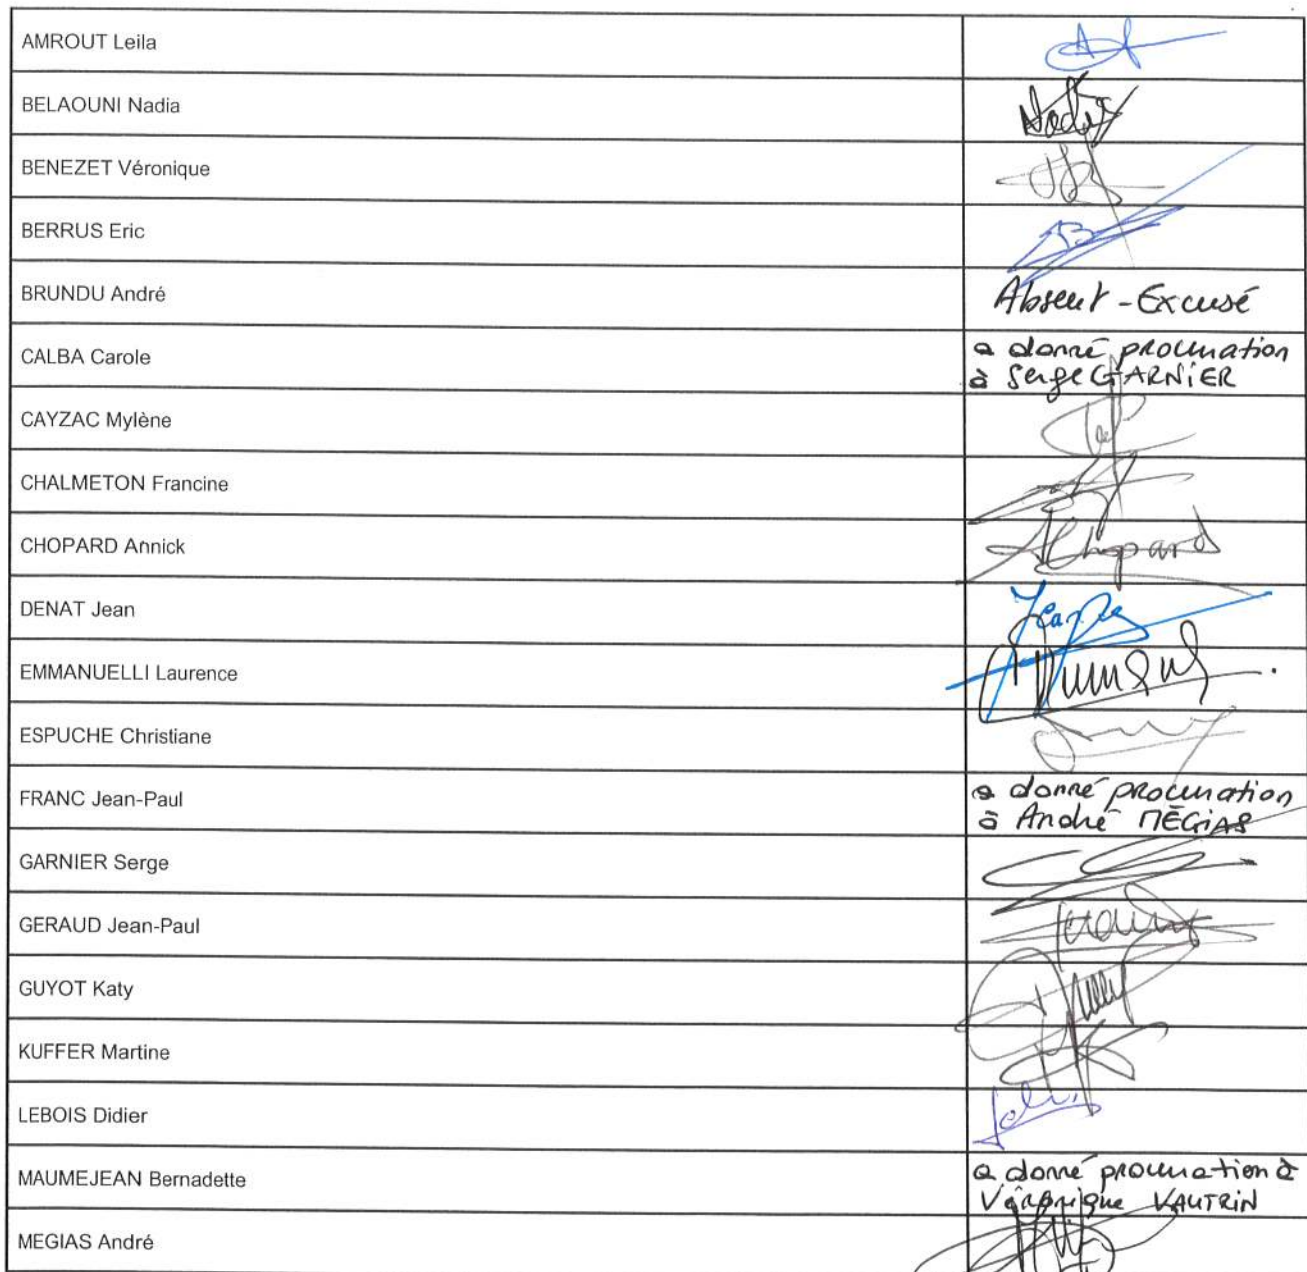 AMROUT Leila
BELAOUNI Nadia
Nadia
BENEZET Véronique
BERRUS Eric
BRUNDU André
Absent - Excusé
CALBA Carole
a donné procuration
à Serge GARNIER
CAYZAC Mylène
CHALMETON Francine
CHOPARD Annick
AChopard
DENAT Jean
EMMANUELLI Laurence
ESPUCHE Christiane
FRANC Jean-Paul
a donné procuration
à André MÉGIAS
GARNIER Serge
GERAUD Jean-Paul
GUYOT Katy
KUFFER Martine
LEBOIS Didier
MAUMEJEAN Bernadette
a donné procuration à
Véronique VAUTRIN
MEGIAS André